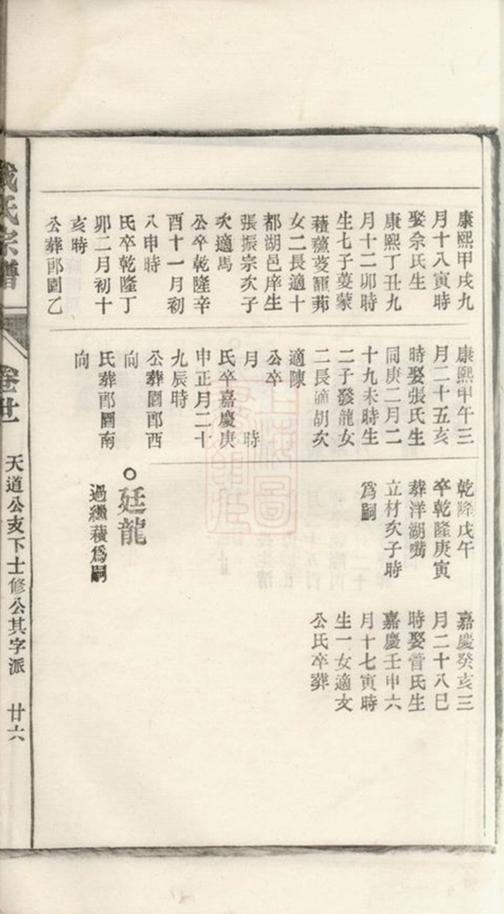 康熙甲戌九
月十八寅時
娶佘氏生
康熙丁丑九
月十二卯時
生七子蔓蒙
藉蘊蔆蘢茀
女二長適十
都湖邑庠生
張振宗次子
次適馬
公卒乾隆辛
酉十一月初
八申時
氏卒乾隆丁
卯二月初十
亥時
公葬邵圖乙
康熙甲午三
月二十五亥
時娶張氏生
同庚二月二
十九未時生
二子發龍女
二長適胡次
適陳
公卒
月 時
氏卒嘉慶庚
申正月二十
九辰時
公葬圖邵酉
向
氏葬邵圖南
向
廷龍
過繼藉爲嗣
乾隆戊午
卒乾隆庚寅
葬洋湖嘴
立材次子時
爲嗣
嘉慶癸亥三
月二十八巳
時娶管氏生
嘉慶壬申六
月十七寅時
生一女適文
公氏卒葬
氏宗譜
卷廿
天道公支下士修公其字派
廿六